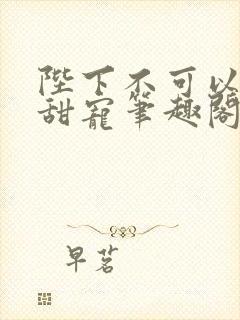 陛下不可以
甜宠笔趣阁
早茗